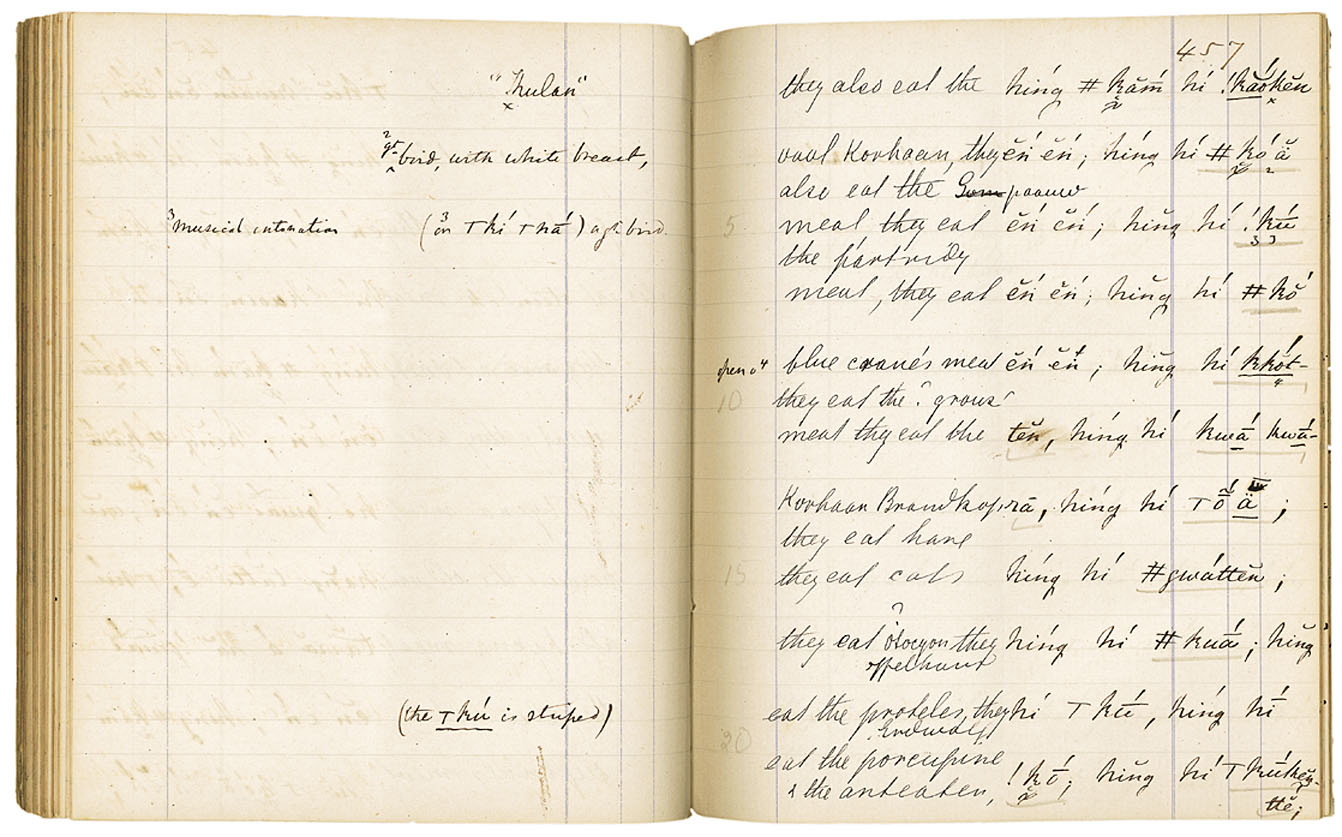 "!kulan"
gt. bird, with white breast,
3 musical intonation (3 or ꞱkíꞱ ná) a gt. bird
(the Ʇkú is striped)
457
they also eat the híng ǂ kắm hí !kăŏkĕn
vaal Korhaan, they ĕń ĕń; híng hí ǂ kó ä
also eat the paauw
5 meat they eat ĕń ĕń; hińg hí !kú
the partridge
meat, they eat ĕń ĕń; hińg hí ǂ kŏ́
open o 4 blue crane's meat ĕń ĕń; hińg hí kkŏ́t-
10 they eat the ? 'grous'
meat they eat the tĕn, híng hí kwá kwá-
Korhaan Brandkop rā, híng hí Ʇ ŏ́ ä;
they eat hare
15 they eat cats híng hí ǂgwáttĕn;
they eat Otocyon they híng hí ǂ kuá; hińg
?
eat the proteles, they hí Ʇ kú, híng hí
Erdwolf
20 eat the porcupine
& the anteater, !kó; hińg hí Ʇ kúkĕn-
ttĕ;